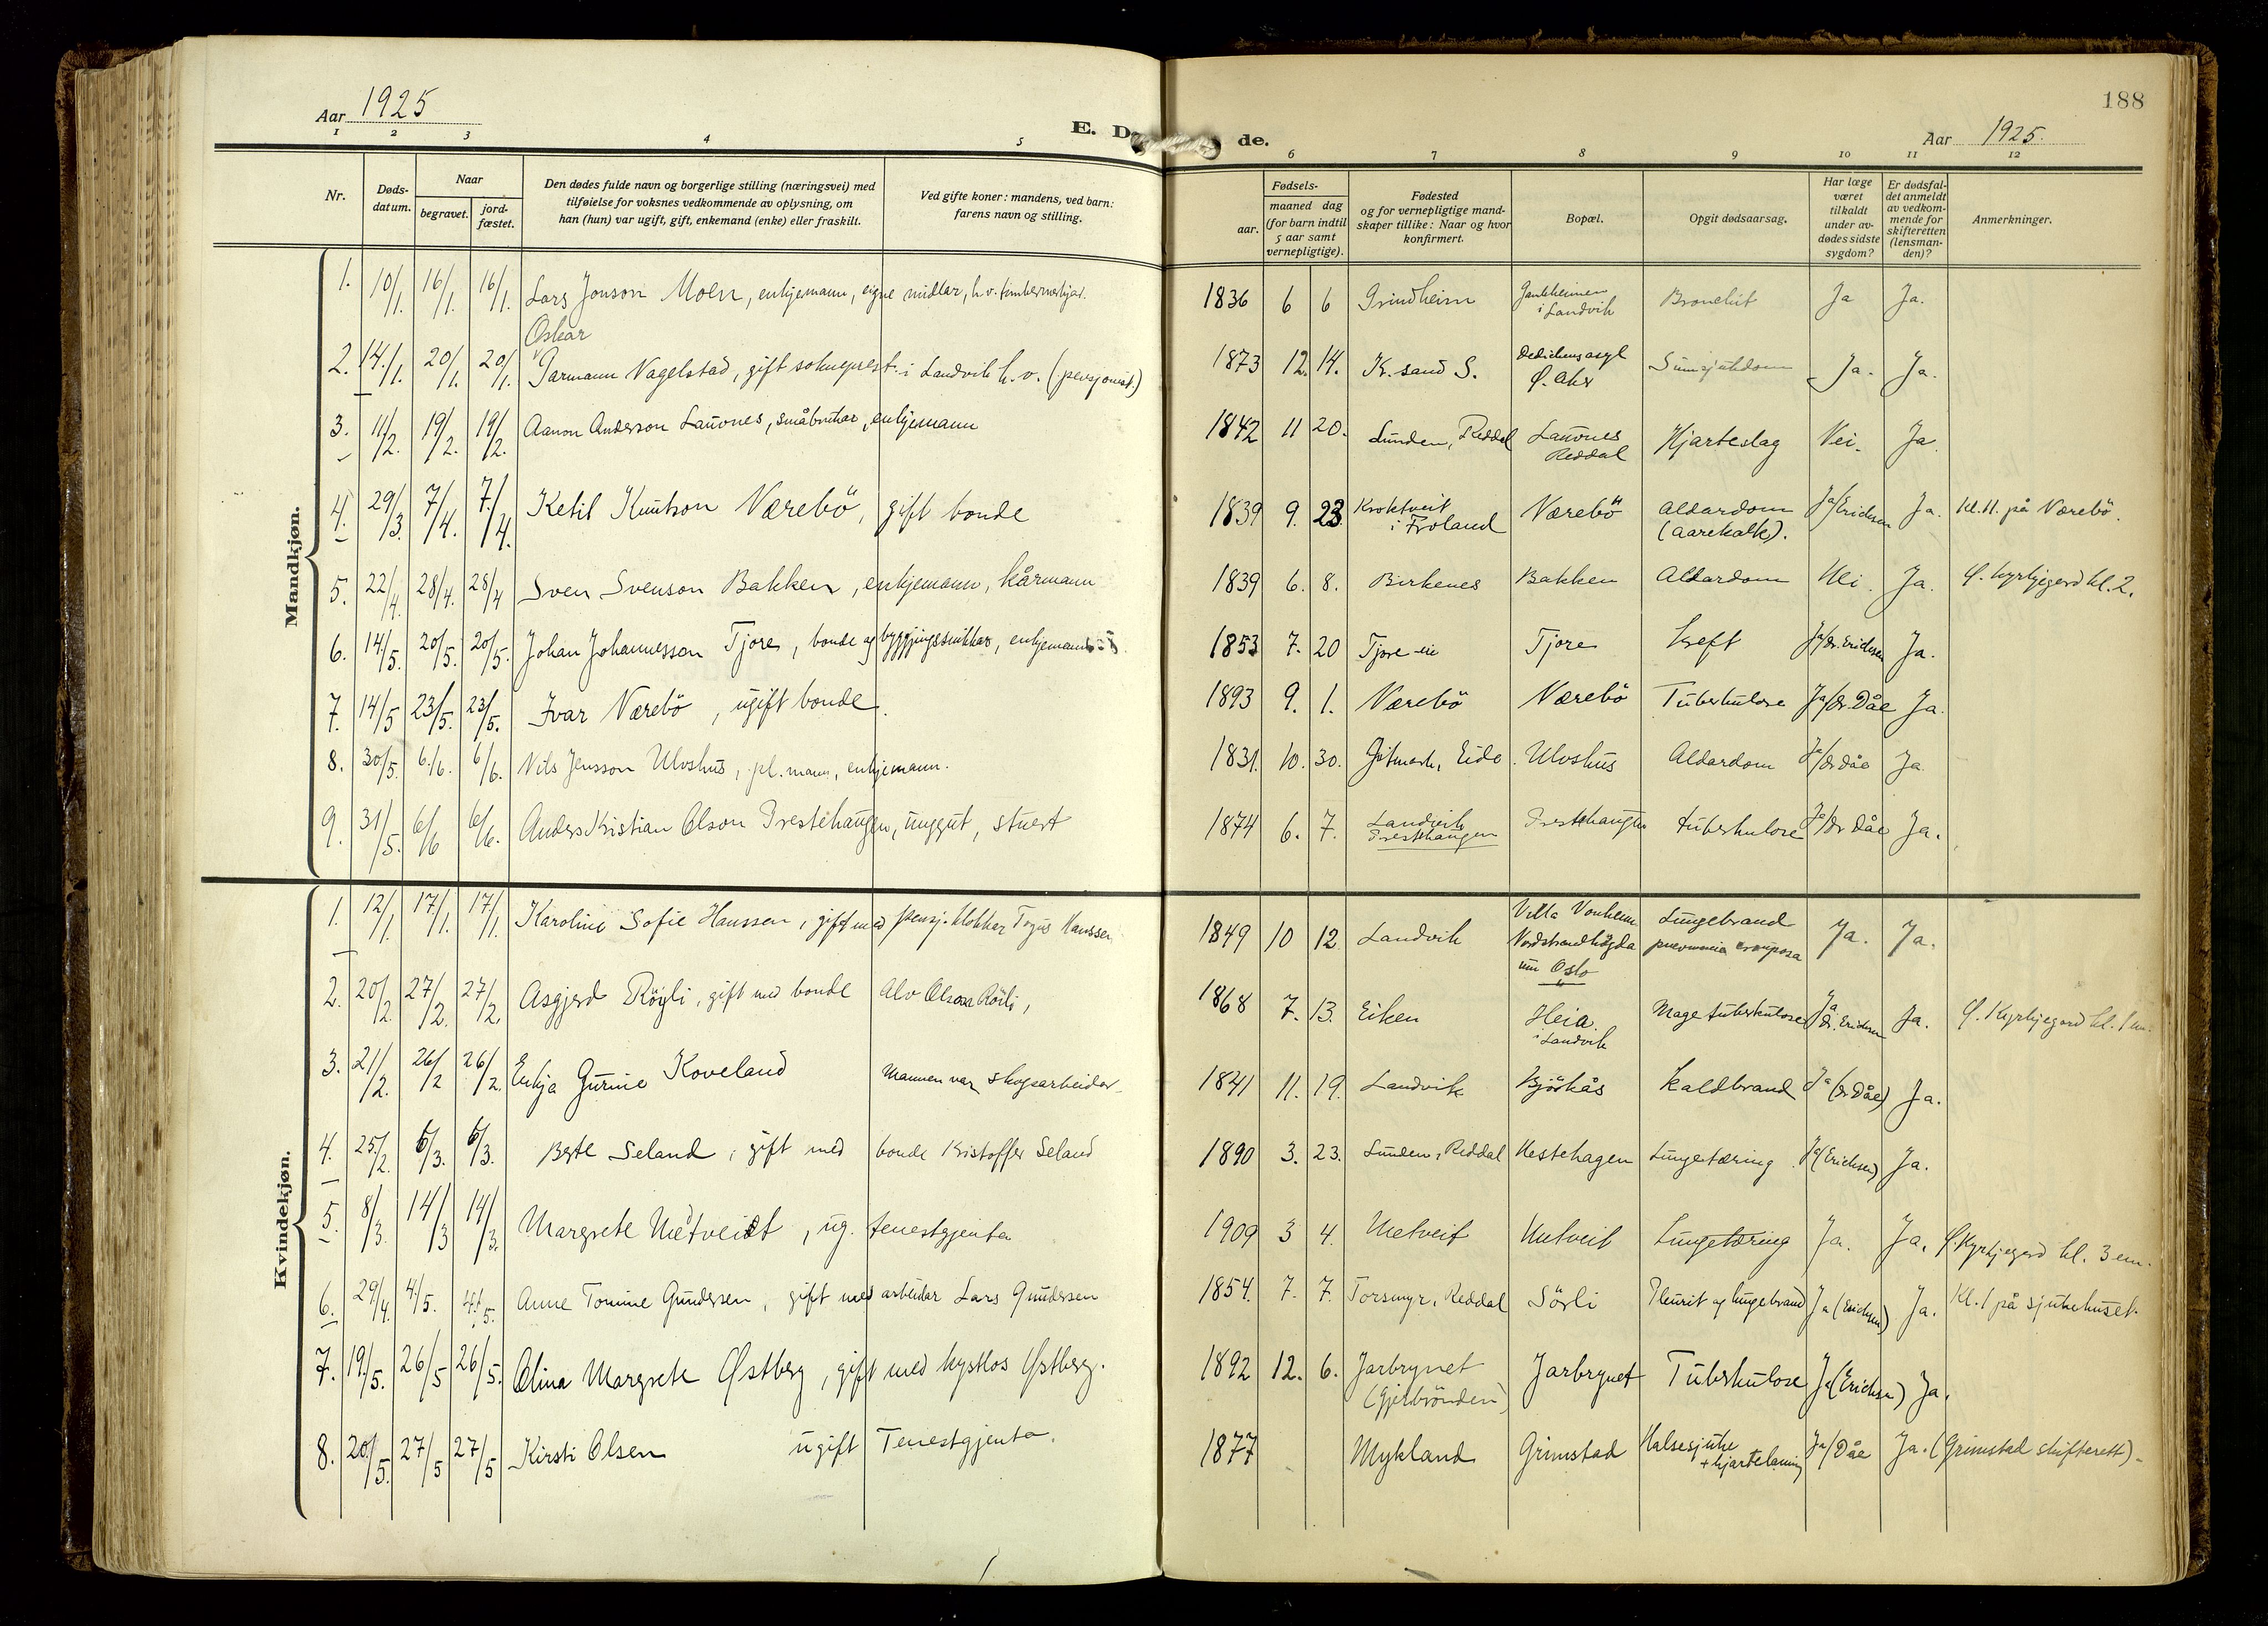 188
Aar 1925
E. D de.
Aar 1925.
1 2 3 4 5 6 7 8 9 10 11 12
Nr.
Døds-
datum.
Naar
begravet.
jord-
fæstet.
Den dødes fulde navn og borgerlige stilling (næringsvei) med
tilføielse for voksnes vedkommende av oplysning, om
han (hun) var ugift, gift, enkemand (enke) eller fraskilt.
Ved gifte koner: mandens, ved barn:
farens navn og stilling.
Fødsels-
aar.
maaned dag
(for barn indtil
5 aar samt
vernepligtige).
Fødested
og for vernepligtige mand-
skaper tillike: Naar og hvor
konfirmert.
Bopæl.
Opgit dødsaarsag.
Har læge
været
tilkaldt
under av-
dødes sidste
sygdom?
Er dødsfal-
det anmeldt
av vedkom-
mende for
skifteretten
(lensman-
den)?
Anmerkninger.
Mandkjøn.
1. 10/1. 16/1. 16/1. Lars Jonson Moen, enkjemann, eigne midlar, h.v. 1836 6 6 Grindheim i Landvik Bronchit Ja Ja.
Oskar
2. 14/1. 20/1. 20/1. Garmann Nagelstad, gift sokneprest i Landvik h.v. (pensjonist) 1873 12. 14. K.sand S. Dedichens asyl Ø. Aker Sinnsjukdom Ja. Ja.
3. 11/2. 19/2. 19/2. Aanon Anderson Lauvnes, småbrukar, enkjemann 1842 11 20. Lunden, Reddal Lauvnes Reddal Hjarteslag Nei. Ja.
4. 29/3. 7/4. 7/4. Ketil Knutson Værebö, gift bonde 1839 9. 23 i Froland Værebö Aldardom (aarekalk). Ja/Erichsen Ja. Kl. 11. på Værebö.
5. 22/4. 28/4. 28/4 Sven Svenson Bakken, enkjemann, kårmann 1839 6. 8. Birkenes Bakken Aldardom Nei. Ja. kyrkjegard kl. 2.
6. 14/5. 20/5. 20/5. Johan Johannesson Tjore, bonde og byggjingssnikkar, enkjemann 1853 7. 20 Tjore Tjore Kreft Ja/dr. Erichsen Ja.
7. 14/5 23/5. 23/5. Ivar Værebö, ugift bonde. 1893 9. 1. Værebö Værebö Tuberkulose Ja/dr. Dåe Ja.
8. 30/5. 6/6. 6/6. Nils Jensson Ulvshus, pl. mann, enkjemann. 1831. 10. 30. Gitmark, Eide. Ulvshus Aldardom Ja/dr Dåe Ja.
9. 31/5. 6/6 6/6. Anders Kristian Olson Prestehaugen, unggut, stuert 1874 6. 7. Landvik Prestehaugen Prestehaugen tuberkulose Ja/dr Dåe Ja.
Kvindekjøn.
1. 12/1. 17/1. 17/1. Karoline Sofie Hanssen, gift med pensj. klokkar Hanssen 1849 10 12. Landvik Villa Vonheim Nordstrandhögda um Oslo Lungebrand pneumonia crouposa Ja. Ja.
2. 20/2. 27/2. 27/2. Asgjerd Röyli, gift med bonde Alv Olsson Röili, 1868 7. 13. Eiken Heia i Landvik Mage tuberkulose Ja dr. Erichsen Ja. Kyrkjegard kl. 1 em.
3. 21/2. 26/2 26/2. Enkja Gurine Koveland Mannen var skogsarbeidar 1841 11. 19. Landvik Björkås Kaldbrand Ja (dr Dåe) Ja.
4. 25/2. 6/3. 6/3. Berte Seland, gift med bonde Kristoffer Seland 1890 3. 23. Lunden, Reddal Hestehagen Lungetæring Ja (Erichsen) Ja.
5. 8/3. 14/3 14/3. Margrete Udtveidt, ug. tenestgjenta 1909 3 4. Lungetæring Ja. Ja. Kyrkjegard kl. 3 em.
6. 29/4. 4/5. 4/5. Anne Tomine Gundersen, gift med arbeidar Lars Gundersen 1854. 7. 7. Torsmyr, Reddal Sörli Pleurit og lungebrand Ja (Erichsen) Ja. Kl. 1 på sjukehuset.
7. 19/5. 26/5 26/5. Olina Margrete Østberg, gift med Østberg. 1892 12. 6. Jarbrynet Jarbrynet Tuberkulose Ja (Erichsen) Ja.
8. 20/5. 27/5 27/5 Kirsti Olsen ugift Tenestgjenta. 1877 Mykland Grimstad Halsesjuke + hjartelaming Ja/Dåe Ja. (Grimstad skifterett).